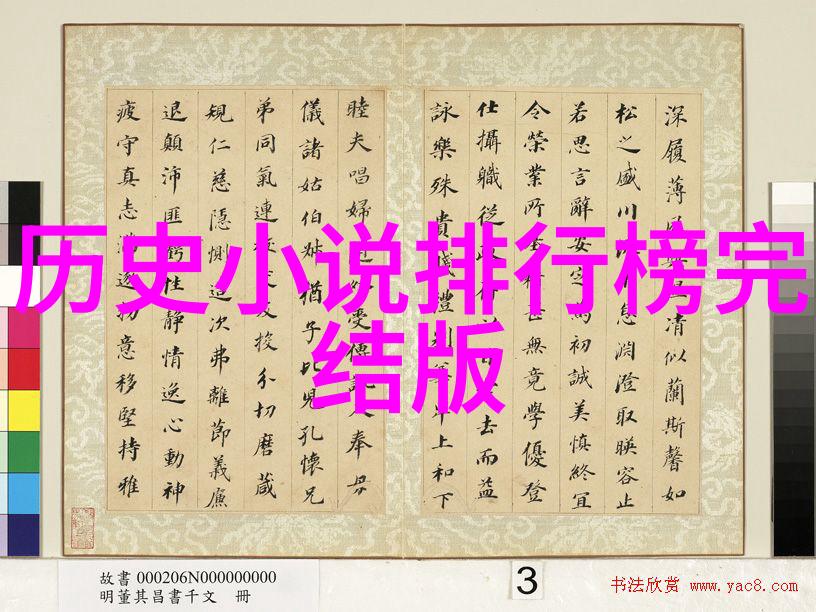 深履薄清似蘭斯馨如
松之盛川息淵澄取暎容止
若思言辭安定初誠美慎終宜
令榮業所甚無竟學優登
仕攝職從政去而益
詠樂殊貴賤禮別上和下
睦夫唱婦受傅奉母
儀諸姑伯叔猶子比兒孔懷兄
弟同氣連交友投分切磨箴
規仁慈隱惻造次弗離節義廉
退顛沛匪虧性靜情逸心動神
疲守真志滿逐物意移堅持雅
历史小说排行榜完
结版
故書 000206N000000000
明董其昌書千文 冊
3
书法欣赏 www.yac8.com